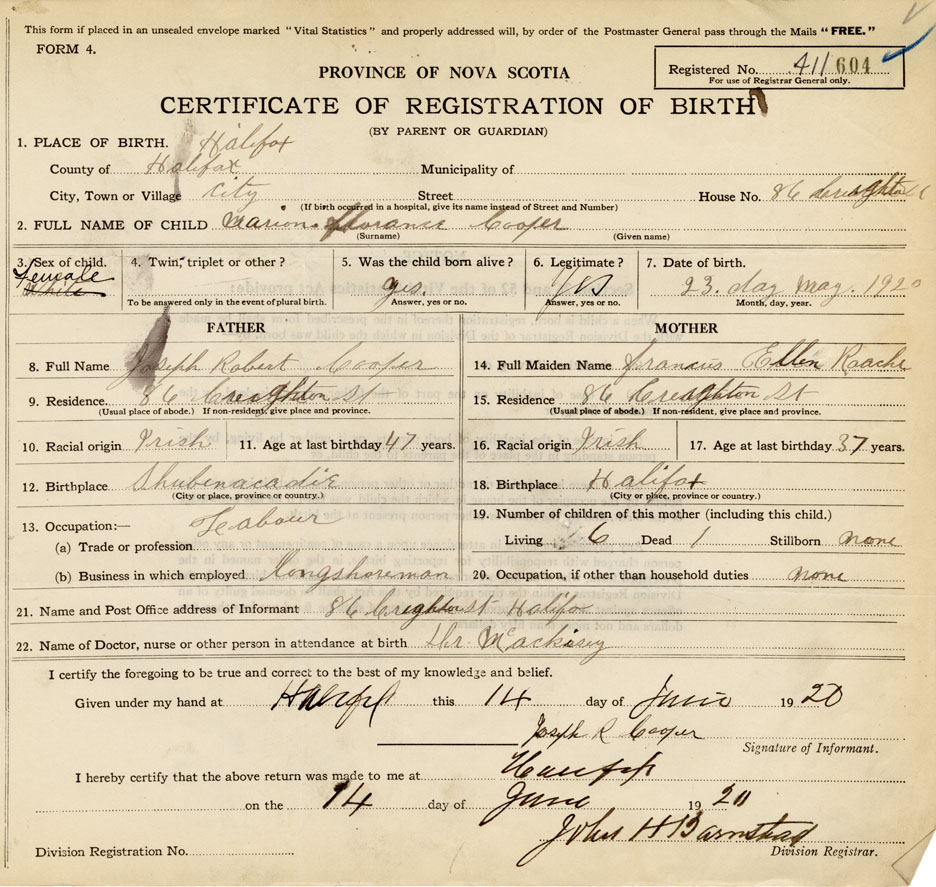 This form if placed in an unsealed envelope marked "Vital Statistics" and properly addressed will, by order of the Postmaster General pass through the Mails "FREE."
FORM 4.
Registered No. 411604
For use of Registrar General only.
PROVINCE OF NOVA SCOTIA
CERTIFICATE OF REGISTRATION OF BIRTH
(BY PARENT OR GUARDIAN)
1. PLACE OF BIRTH. Halifax
County of Halifax Municipality of
City, Town or Village City Street House No. 86 Creighton
(If birth occurred in a hospital, give its name instead of Street and Number)
2. FULL NAME OF CHILD Marion Florance Cooper
(Surname) (Given name)
3. Sex of child. 4. Twin, triplet or other? 5. Was the child born alive? 6. Legitimate? 7. Date of birth.
Female White yes. yes 23. day May. 1920
To be answered only in the event of plural birth. Answer, yes or no. Answer, yes or no. Month, day, year.
FATHER MOTHER
8. Full Name Joseph Robert Cooper 14. Full Maiden Name Francus Ellen Roache
9. Residence. 86 Creaghton St 15. Residence 86 Creaghton St
(Usual place of abode.) If non-resident, give place and province. (Usual place of abode.) If non-resident, give place and province.
10. Racial origin Irish 11. Age at last birthday 47 years. 16. Racial origin Irish 17. Age at last birthday 37 years.
12. Birthplace Shubenacadie 18. Birthplace Halifax
(City or place, province or country.) (City or place, province or country.)
13. Occupation:— Labour 19. Number of children of this mother (including this child.)
(a) Trade or profession Living 6 Dead 1 Stillborn none
(b) Business in which employed Longshoreman 20. Occupation, if other than household duties none
21. Name and Post Office address of Informant 86 Creghton St Halifax
22. Name of Doctor, nurse or other person in attendance at birth Dr.
I certify the foregoing to be true and correct to the best of my knowledge and belief.
Given under my hand at Halifax this 14 day of June 1920
Joseph R Cooper
Signature of Informant.
I hereby certify that the above return was made to me at Halifax
on the 14 day of June 1920
John H Barnstead
Division Registration No. Division Registrar.